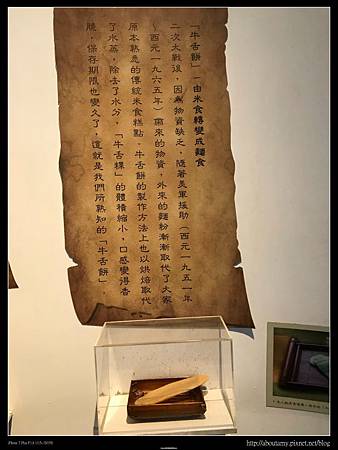 「牛舌餅」－由米食轉變成麵食
二次大戰後，因為物資缺乏，隨著美軍援助（西元一九五一年
～西元一九六五年）帶來的物資，外來的麵粉漸漸取代了大家
原本熟悉的傳統米食糕點，牛舌餅的製作方法上也以烘焙取代
了水蒸，除去了水分，「牛舌粿」的體積縮小，口感變得香
脆，保存期間也變久了，這就是我們所熟知的「牛舌餅」
http://aboutamy.pixnet.net/blog